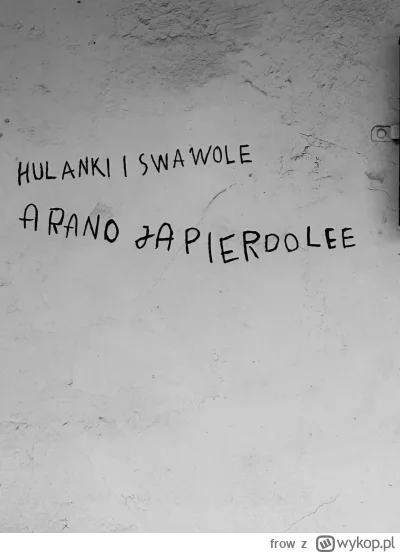 HULANKI I SWAWOLE
A RANO JA PIERDOLEE
frow z wykop.pl